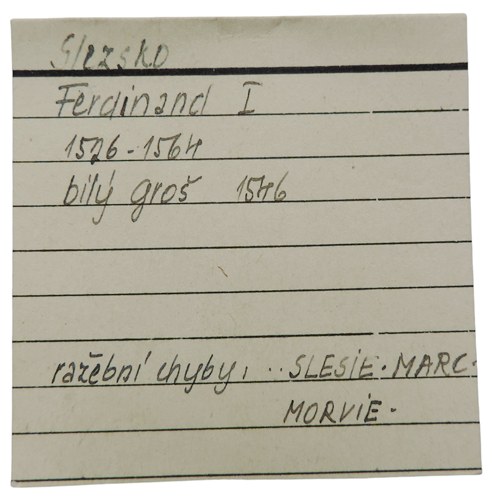 Slezsko
Ferdinand I
1526-1564
bílý groš 1546
ražební chyby, ·· SLESIE·MARC·
MORVIE·